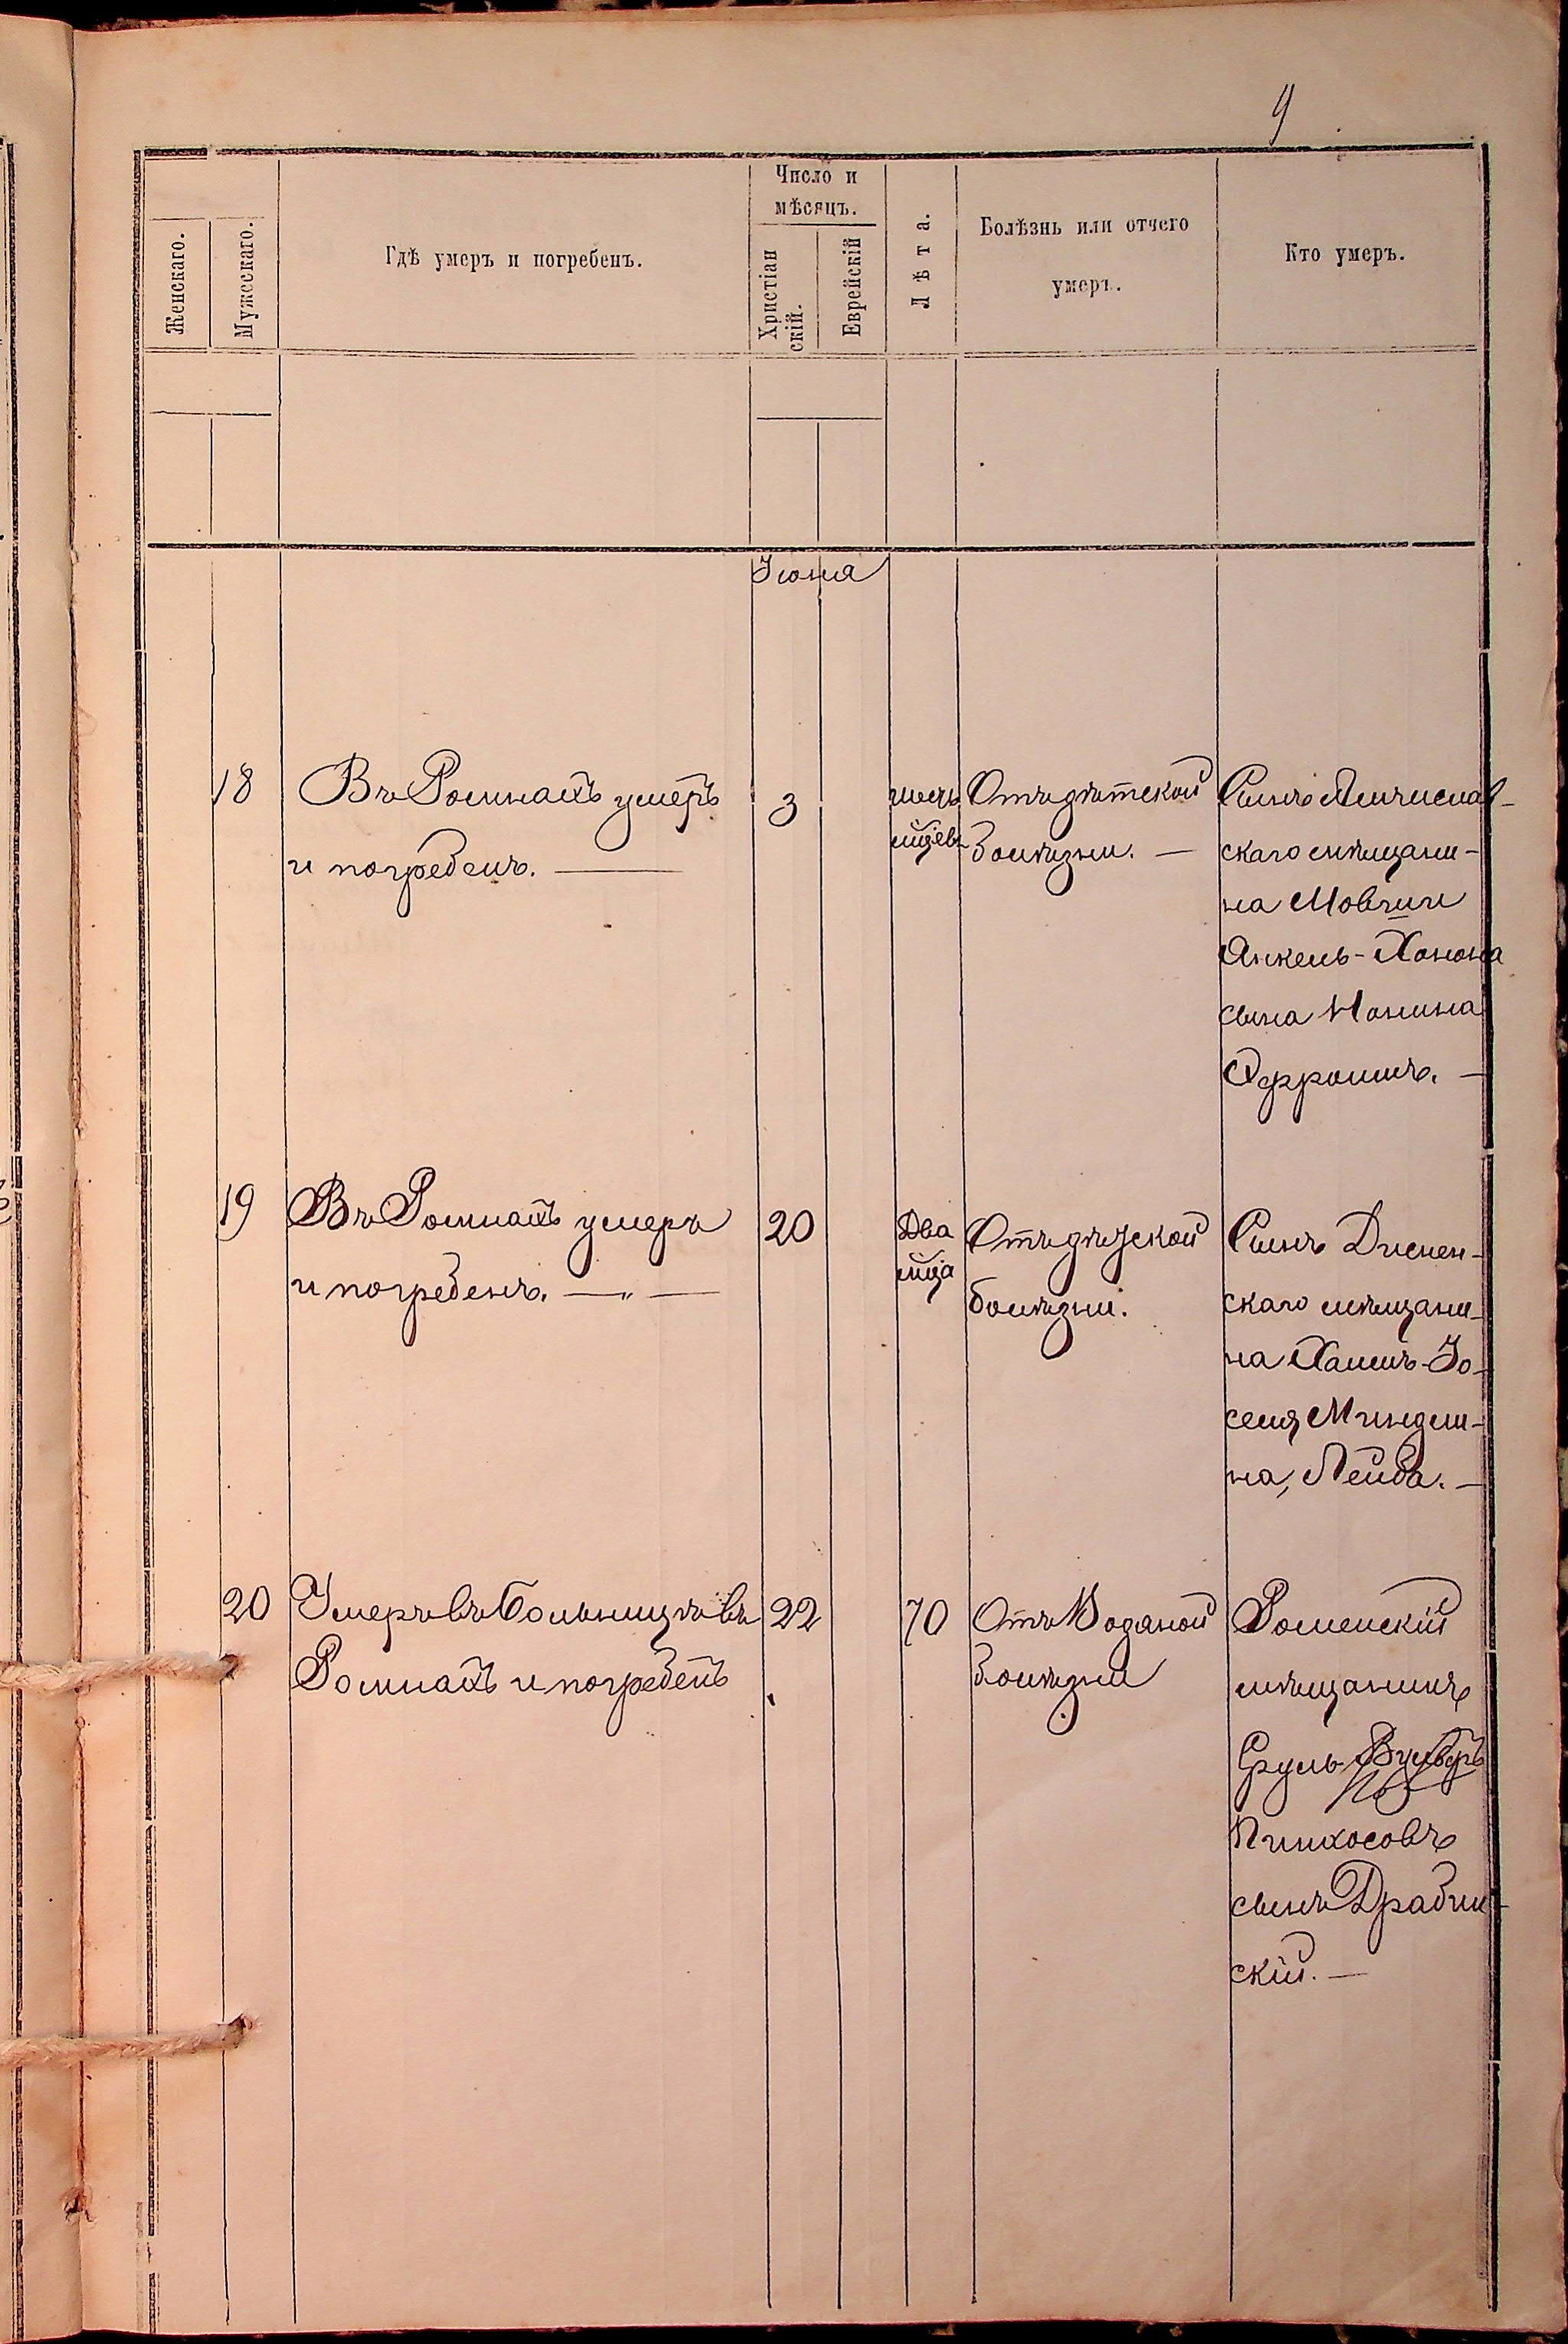 9
Число и
мѣсяцъ.
Женскаго.
Мужескаго.
Гдѣ умеръ и погребенъ.
Христіан
скій.
Еврейскій
Лѣта.
Болѣзнь или отчего
умеръ.
Кто умеръ.
Іюня
18
Въ Ромнахъ умеръ
и погребенъ. —
3
шесть
мцевъ
Отъ дѣтской
болѣзни. —
Сынъ Мстислав-
скаго мѣщани-
на Мовши
Янкель-Хонона
сына Нонина
Эфроимъ. —
19
Въ Ромнахъ умеръ
и погребенъ. — „ —
20
Два
мца
Отъ дѣтской
болѣзни.
Сынъ Диснен-
скаго мѣщани-
на Хаимъ-Іо-
селя Миндли-
на, Лейба. —
20
Умеръ въ больницѣ въ
Ромнахъ и погребенъ
22
70
Отъ Водяной
болѣзни
Роменскій
мѣщанинъ
Сруль
Пинхосовъ
сынъ Драбин-
скій. —